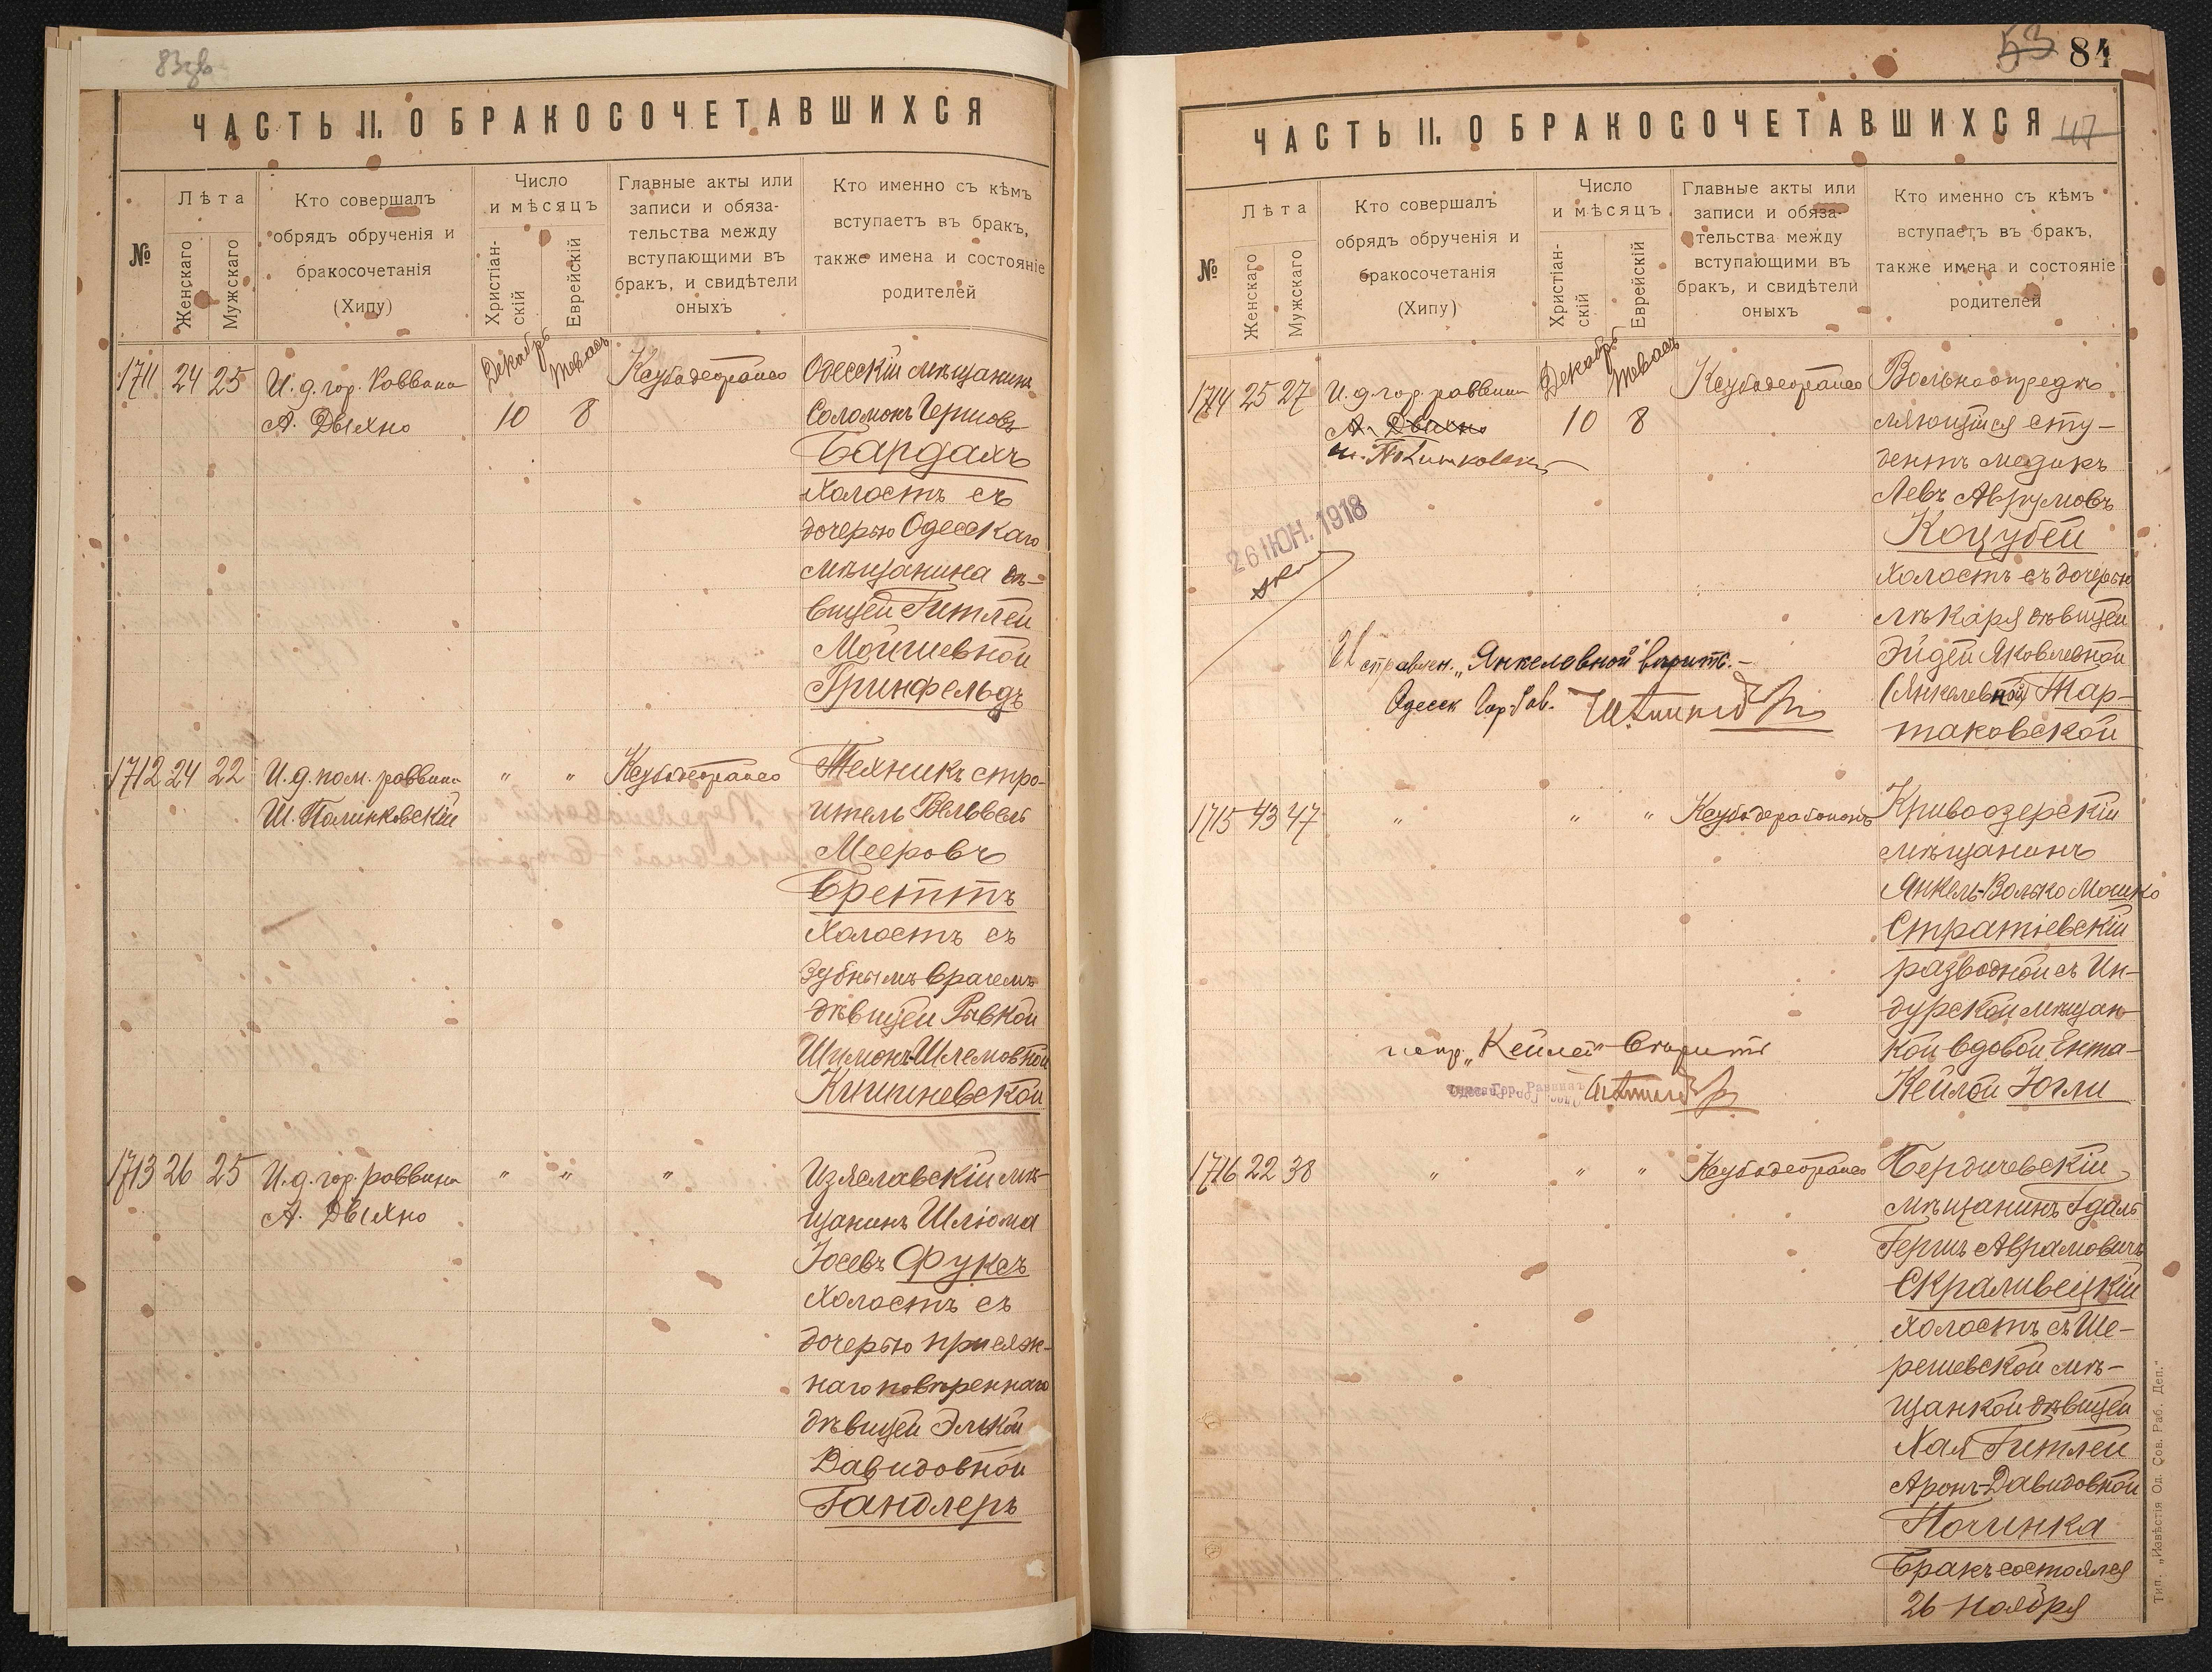 83зв
ЧАСТЬ II. О БРАКОСОЧЕТАВШИХСЯ
№
Лѣта
Женскаго
Мужскаго
Кто совершалъ
обрядъ обрученія и
бракосочетанія
(Хипу)
Число
и мѣсяцъ
Христіан-
скій
Еврейскій
Главные акты или
записи и обяза-
тельства между
вступающими въ
бракъ, и свидѣтели
оныхъ
Кто именно съ кѣмъ
вступаетъ въ бракъ,
также имена и состояніе
родителей
1711 24 25
И. д. гор. Раввина
А. Двыхно
Декабрь
10
Тевасъ
8
Ксубодеораисо
Одесскій мѣщанинъ
Соломонъ Гершовъ
Бардахъ
Холостъ съ
дочерью Одесскаго
мѣщанина дѣ-
вицей Гитлей
Мойшевной
Гринфельдъ
1712 24 22
И. д. пом. раввина
Ш. Полинковскій
" "
Ксубодеораисо
Техникъ стро-
итель Вельвель
Мееровъ
Бреттъ
Холостъ съ
зубнымъ врачемъ
дѣвицей Рывкой
Шимонъ-Шлемовной
Кишиневской
1713 26 25
И. д. гор. раввина
А. Двыхно
" " "
Изяславскій мѣ-
щанинъ Шлюма
Іосевъ Фуксъ
Холостъ съ
дочерью присяж-
наго повѣреннаго
дѣвицей Элькой
Давидовной
Гандлеръ
53 84
ЧАСТЬ II. О БРАКОСОЧЕТАВШИХСЯ
47
№
Лѣта
Женскаго
Мужскаго
Кто совершалъ
обрядъ обрученія и
бракосочетанія
(Хипу)
Число
и мѣсяцъ
Христіан-
скій
Еврейскій
Главные акты или
записи и обяза-
тельства между
вступающими въ
бракъ, и свидѣтели
оныхъ
Кто именно съ кѣмъ
вступаетъ въ бракъ,
также имена и состояніе
родителей
1714 25 27
И. д. гор. раввина
А. Двыхно
Декабрь
10
Тевасъ
8
Ксубодеораисо
Вольноопредѣ
ляющійся сту-
дентъ медикъ
Левъ Аврумовъ
Коцубей
Холостъ съ дочерью
лѣкаря дѣвицей
Эйдей Яковлевной
(Янкелевной) Тар-
таковской
26 ІЮН. 1918
Исправлен. „Янкелевной" вѣрить.
Одесск Гор Рав.
1715 43 47
" " "
Кривоозерскій
мѣщанинъ
Янкель-Волько Мошко
Стратіевскій
разводной съ Ин-
дурской мѣщан-
кой вдовой Ента-
Кейлой Югли
испр. „Кейлей" Вѣрить
Одесс. Гор. Раввинъ
1716 22 38
" " "
Ксубодеораисо
Бердичевскій
мѣщанинъ Гдаль
Гершъ Аврамовичъ
Скраливецкій
холостъ съ Ше-
решевской мѣ-
щанкой дѣвицей
Хая Гитлей
Аронъ-Давидовной
Починка
Бракъ состоялся
26 Ноября
Тип. „Извѣстія Од. Сов. Раб. Деп."